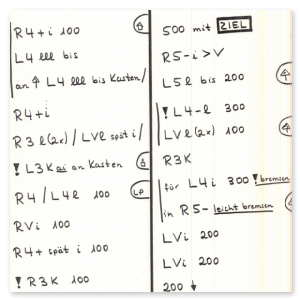 R4+i 100
L4 lll bis
an ↑ L4 lll bis Kasten/
R4+i
R3 l(2x) / LVl spät i/
! L3K ai an Kasten
R4 / L4l 100 LP
RVi 100
R4+ spät i 100
! R3K 100
500 mit ZIEL
R5-i>V
L5l bis 200
! L4-l 300
LVl(2x) 100
R3K
für L4i 300 ! bremsen
in R5- leicht bremsen
LVi 200
LVi 200
200 ↓